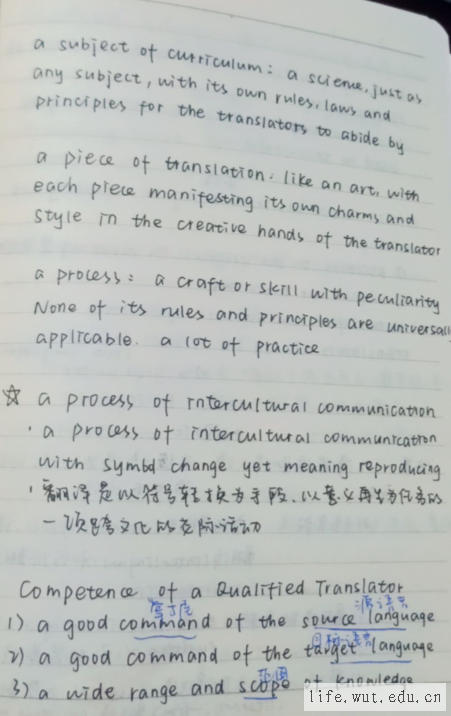 a subject of curriculum: a science, just as
any subject, with its own rules, laws and
principles for the translators to abide by
a piece of translation: like an art, with
each piece manifesting its own charms and
style in the creative hands of the translator
a process: a craft or skill with peculiarity
None of its rules and principles are universall
applicable. a lot of practice
☆ a process of intercultural communication
· a process of intercultural communication
with symbol change yet meaning reproducing
· 翻译是以符号转换为手段、以意义再生为任务的
一项跨文化的交际活动
Competence of a Qualified Translator
掌握 源语言
1) a good command of the source language
目标语言
2) a good command of the target language
范围
3) a wide range and scope of knowledge
life.wut.edu.cn